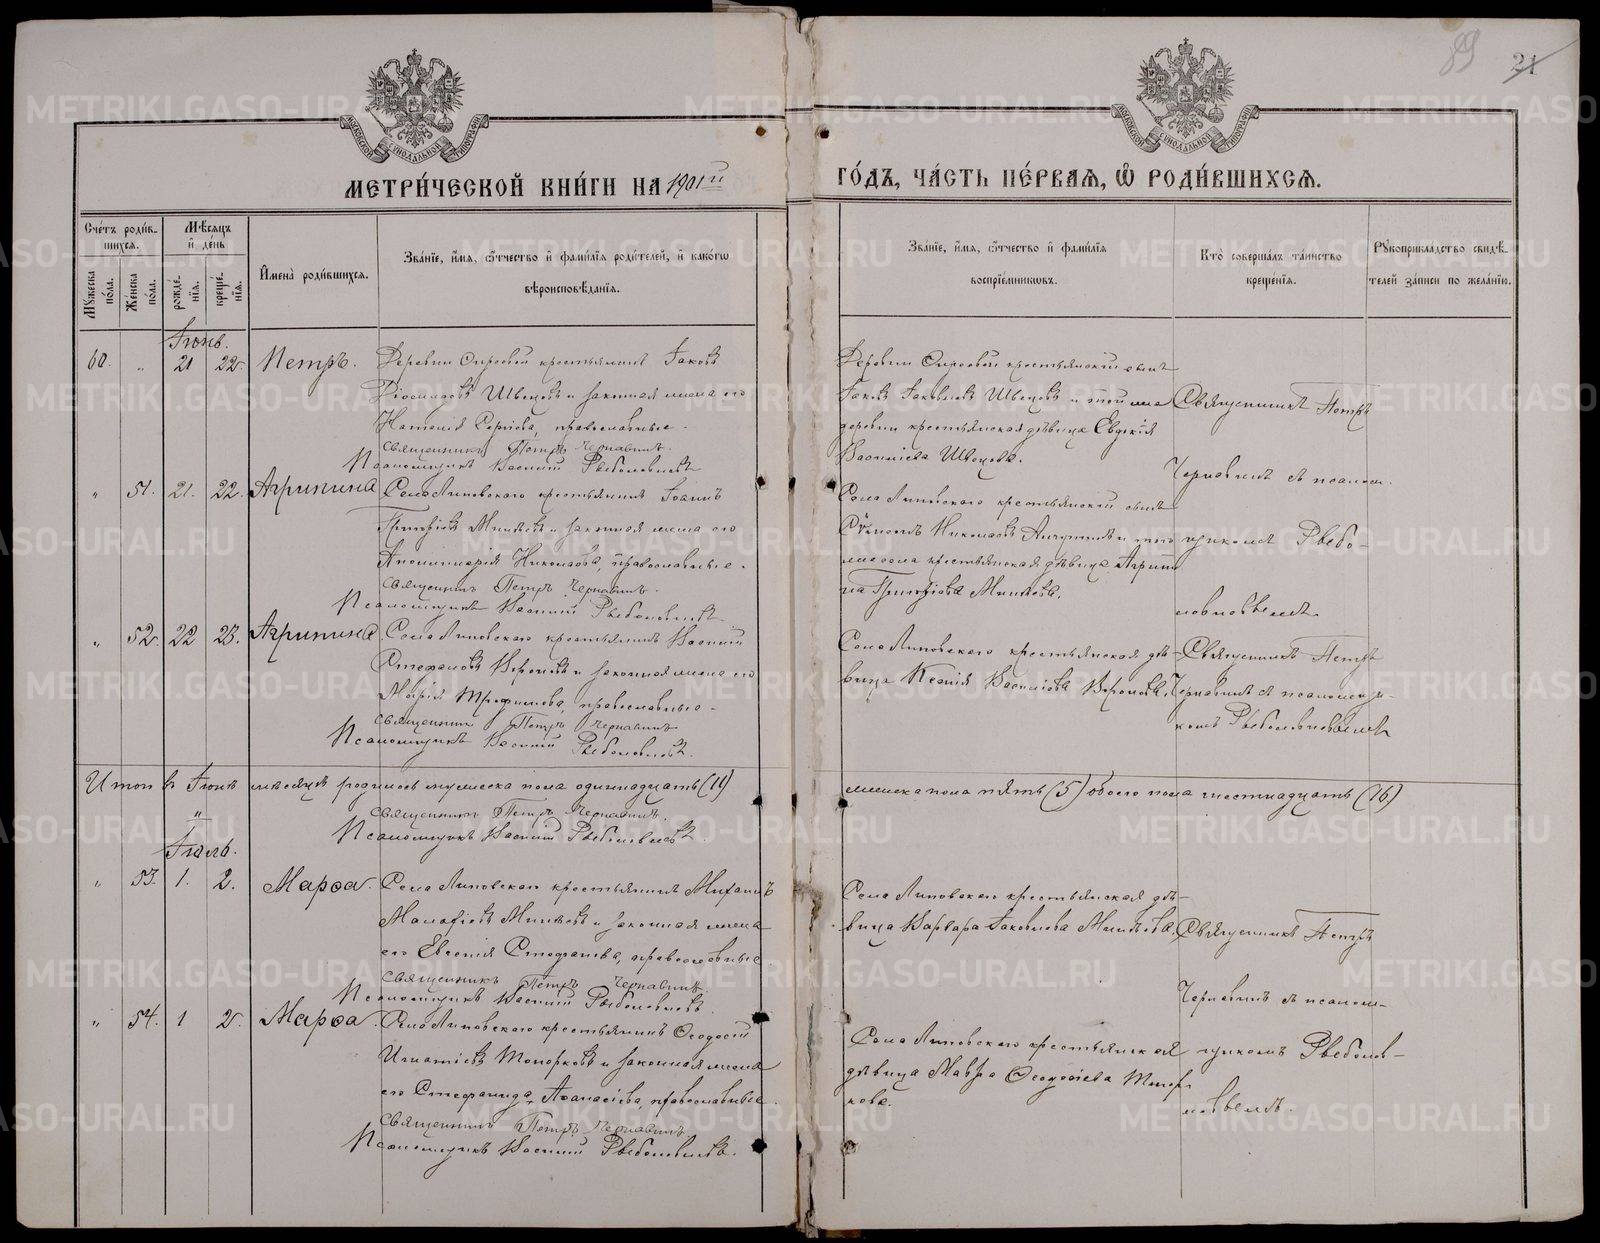 89 21
МЕТРИ́ЧЕСКОЙ КНИ́ГИ НА 1901й ГО́ДЪ, ЧА́СТЬ ПЕ́РВАЯ, Ѽ РОДИ́ВШИХСЯ.
Сче́тъ роди́вшихся.
Му́жеска по́ла.
Же́нска по́ла.
Мѣ́сяцъ и҆ де́нь
рожде́нїя.
креще́нїя.
И҆мена̀ роди́вшихся.
Зва́нїе, и҆́мя, ѻ҆́тчество и҆ фами́лїя роди́телей, и҆ како́гѡ
вѣроисповѣ́данїя.
Зва́нїе, и҆́мя, ѻ҆́тчество и҆ фами́лїя
воспрїе́мниковъ.
Кто̀ соверша́лъ та́инство
креще́нїя.
Рꙋкоприкла́дство свидѣ́-
телей за́писи по жела́нїю.
Іюнь.
60. „ 21 22. Петръ. Деревни крестьянинъ Іаковъ
Діомидовъ Швецовъ и законная жена его
Наталія Сергіева, православные.
Священникъ Петръ Чернавинъ.
Псаломщикъ Василій Рыболовлевъ
Деревни крестьянскій сынъ
Іаковъ Іаковлевъ Швецовъ и той же
деревни крестьянская дѣвица Евдокія
Василіева Швецова.
Священникъ Петръ
Чернавинъ съ псалом-
щикомъ Рыбо-
ловлевымъ
„ 51. 21. 22. Агрипина Села Липовскаго крестьянинъ Іоаннъ
Григоріевъ Миняевъ и законная жена его
Аполлинарія Николаева, православные.
Священникъ Петръ Чернавинъ.
Псаломщикъ Василій Рыболовлевъ
Села Липовскаго крестьянскій сынъ
Николаевъ и того
же села крестьянская дѣвица Агрипи
на Григоріева Миняева.
„ 52. 22 23. Агрипина Села Липовскаго крестьянинъ Василій
Стефановъ и законная жена его
Марія Трофимова, православные.
Священникъ Петръ Чернавинъ
Псаломщикъ Василій Рыболовлевъ.
Села Липовскаго крестьянская дѣ-
вица Ксенія Василіева
Священникъ Петръ
Чернавинъ съ псаломщи-
комъ Рыболовлевымъ
Итого въ Іюнѣ мѣсяцѣ родилось мужеска пола одиннадцать (11)
женска пола пять (5) обоего пола шестнадцать (16)
Священникъ Петръ Чернавинъ.
Псаломщикъ Василій Рыболовлевъ.
Іюль.
„ 53. 1. 2. Марѳа. Села Липовскаго крестьянинъ Михаилъ
Малафіевъ Миняевъ и законная жена
его Евгенія Стефанова, православные
Священникъ Петръ Чернавинъ.
Псаломщикъ Василій Рыболовлевъ
Села Липовскаго крестьянская дѣ-
вица Варвара Іаковлева Миняева.
Священникъ Петръ
Чернавинъ съ псалом-
щикомъ Рыболов-
левымъ.
„ 54. 1 2. Марѳа. Села Липовскаго крестьянинъ Ѳеодосій
Игнатіевъ Топорковъ и законная жена
его Стефанида Аѳанасіева, православные.
Священникъ Петръ Чернавинъ.
Псаломщикъ Василій Рыболовлевъ.
Села Липовскаго крестьянская
дѣвица Мавра Ѳеодосіева Топор-
кова.
METRIKI.GASO-URAL.RU